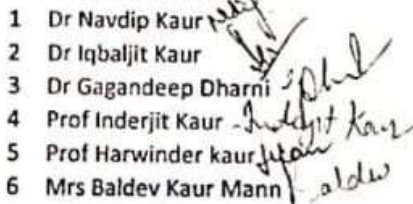 1 Dr Navdip Kaur
2 Dr Iqbaljit Kaur
3 Dr Gagandeep Dharni
4 Prof Inderjit Kaur - Inderjit Kaur
5 Prof Harwinder kaur
6 Mrs Baldev Kaur Mann Baldev